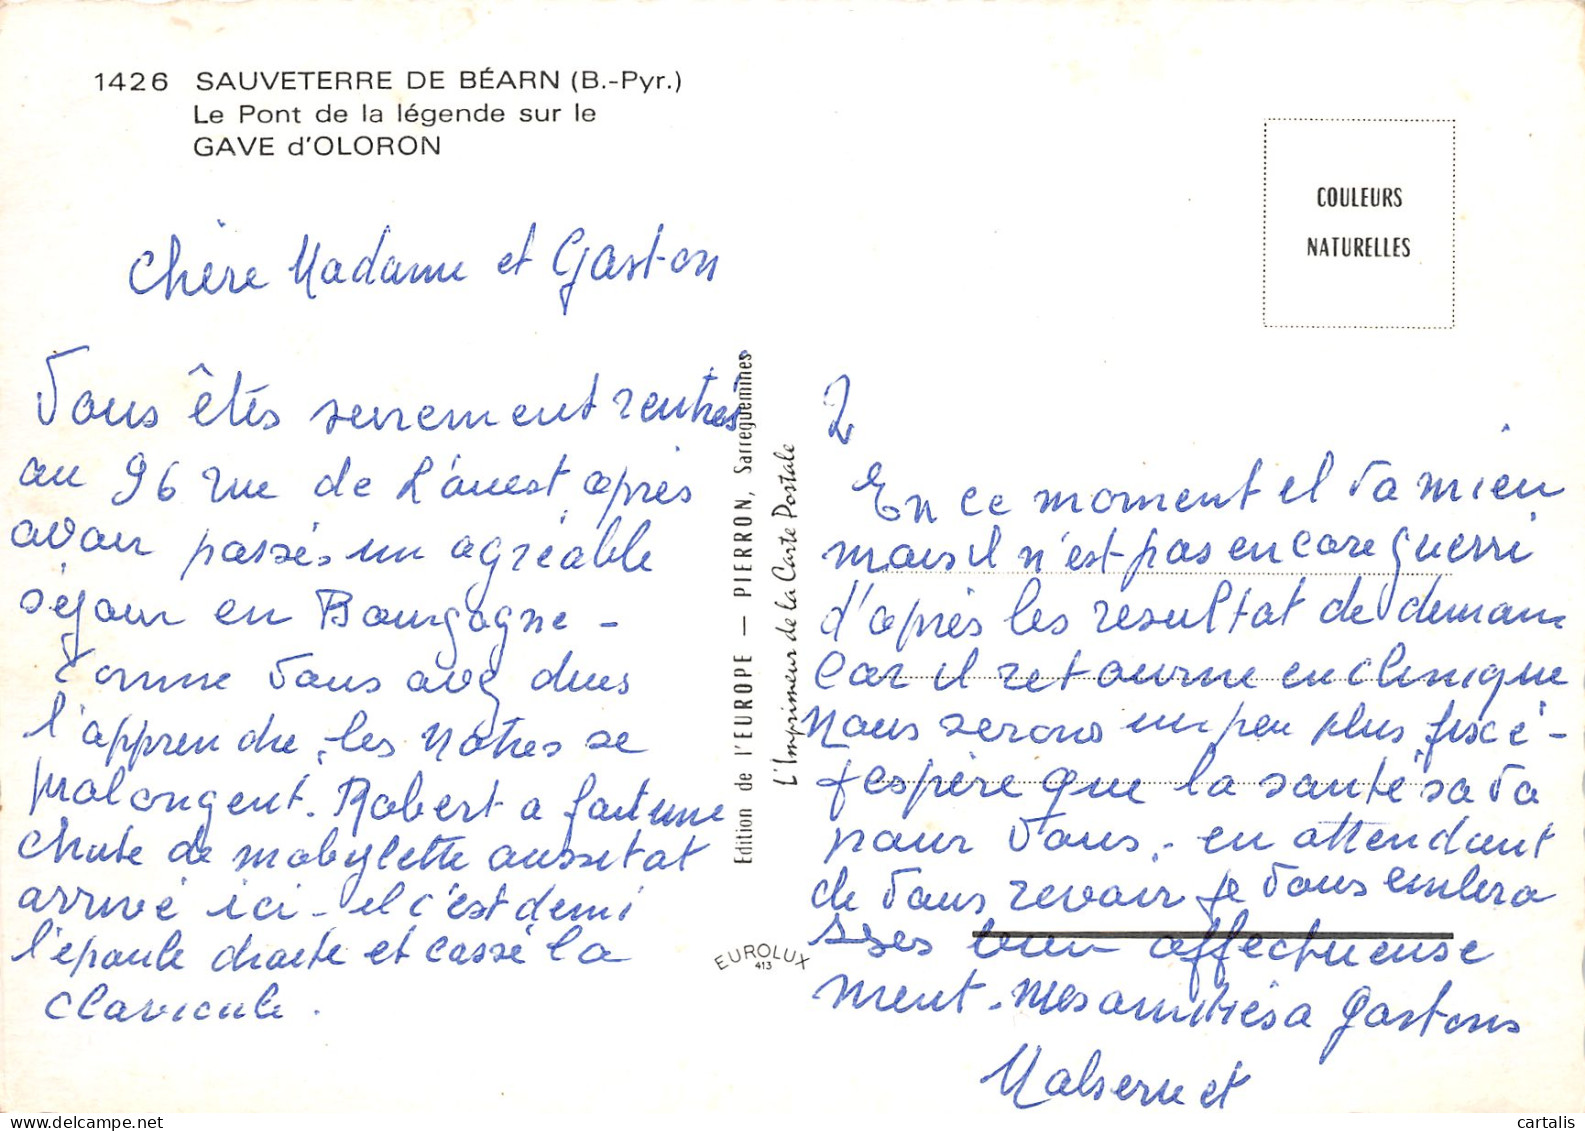 1426 SAUVETERRE DE BÉARN (B.-Pyr.)
Le Pont de la légende sur le
GAVE d'OLORON
COULEURS
NATURELLES
Chère Madame et Gaston
Vous êtes surement rentrés
au 96 rue de L'ouest après
avoir passés un agréable
séjour en Bourgogne -
Comme Vous avez dues
l'apprendre, les nôtres se
prolongent. Robert a fait une
chute de mobylette aussitot
arrivé ici - il c'est demi
l'épaule droite et cassé la
clavicule.
Edition de l'EUROPE — PIERRON, Sarreguemines
L'Imprimeur de la Carte Postale
EUROLUX
413
2
En ce moment il va mieu
mais il n'est pas encore guerri
d'après les resultat de demain
Car il retourne en clinique
Nous serons un peu plus fixcé -
J'espère que la santé sa va
pour Vous, - en attendant
de Vous revoir je Vous embra
sses bien affectueuse
ment - Mes amitiés a Gastons
cartalis